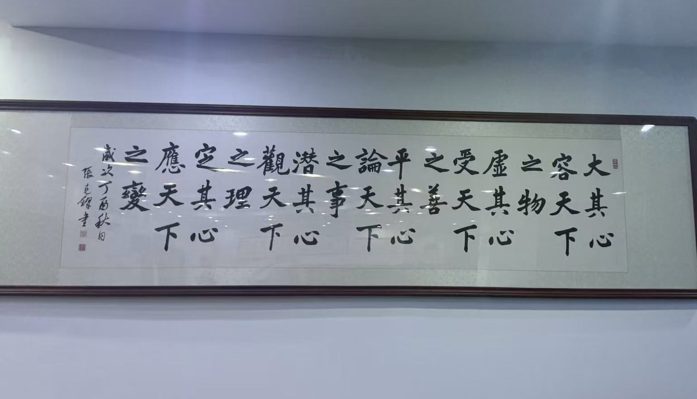 大其心
容天下
之物
虛其心
受天下
之善
平其心
論天下
之事
潛其心
觀天下
之理
定其心
應天下
之變
歲次丁酉秋月